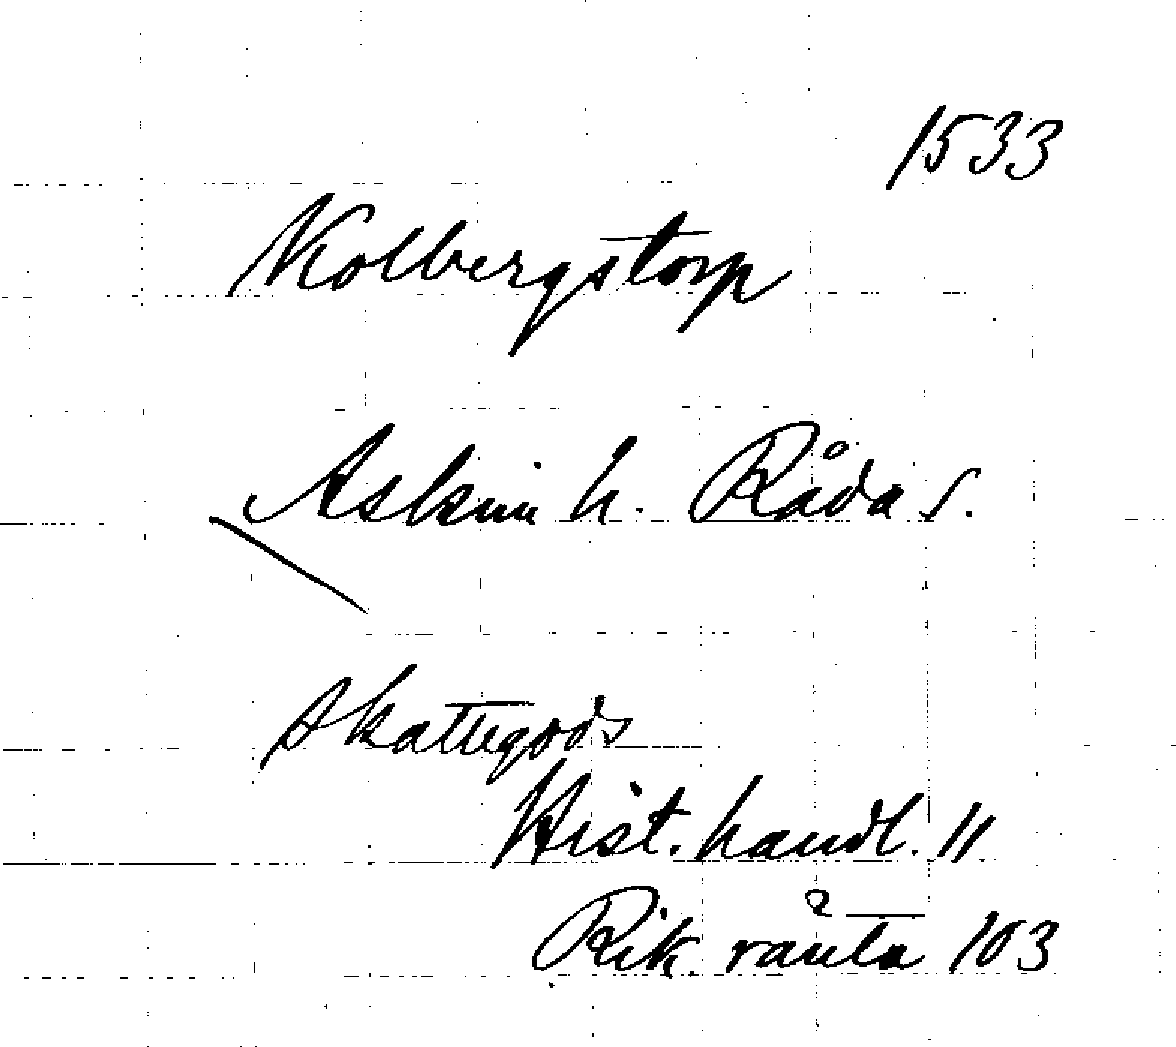 1533
Kolbergstorp
Askim h. Råda s.
skattegods
Hist. handl. 11
Rik. ränta 103